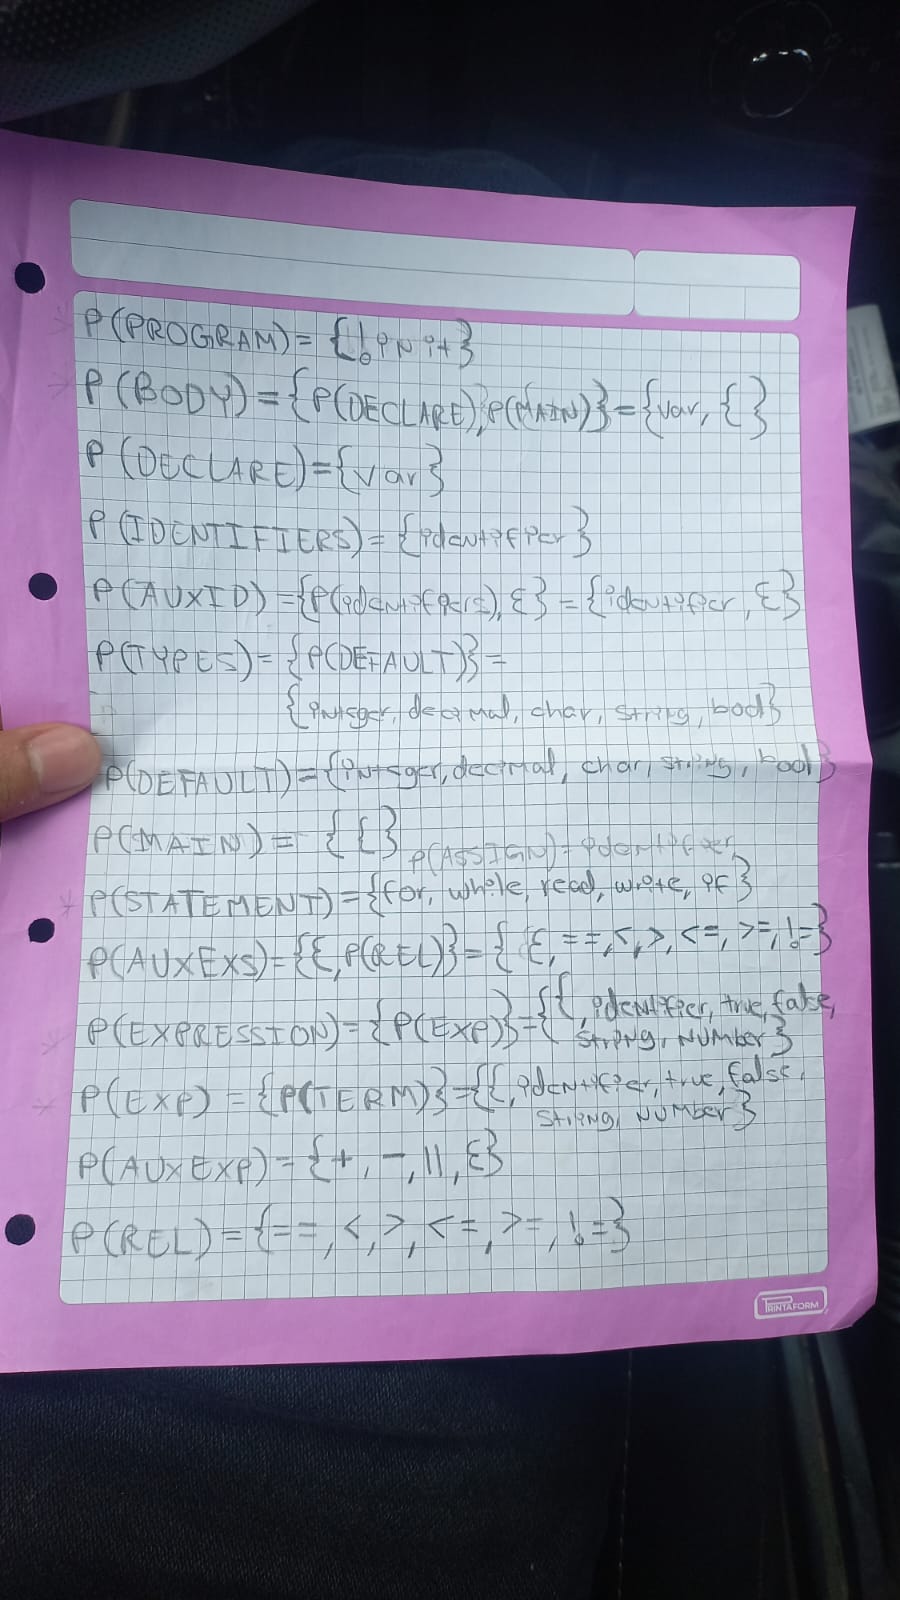 P(PROGRAM)= {!init}
P(BODY)={P(DECLARE),P(MAIN)}={var, { }
P(DECLARE)={var}
P(IDENTIFIERS)= {identifier}
P(AUXID)={P(identifiers), ε} = {identifier, ε}
P(TYPES)= {P(DEFAULT)}=
{integer, decimal, char, string, bool}
P(DEFAULT)={integer, decimal, char, string, bool}
P(MAIN)= { { }
P(ASSIGN)= identifier
P(STATEMENT)={for, while, read, write, if}
P(AUXEXS)={ε, P(REL)} = { ε, ==, <, >, <=, >=, !=}
P(EXPRESSION)={P(EXP)}={ {, identifier, true, false,
string, number}
P(EXP) ={P(TERM)}={ {, identifier, true, false,
string, number}
P(AUXEXP)={+, -, ||, ε}
P(REL)={==, <, >, <=, >=, !=}
PRINTAFORM